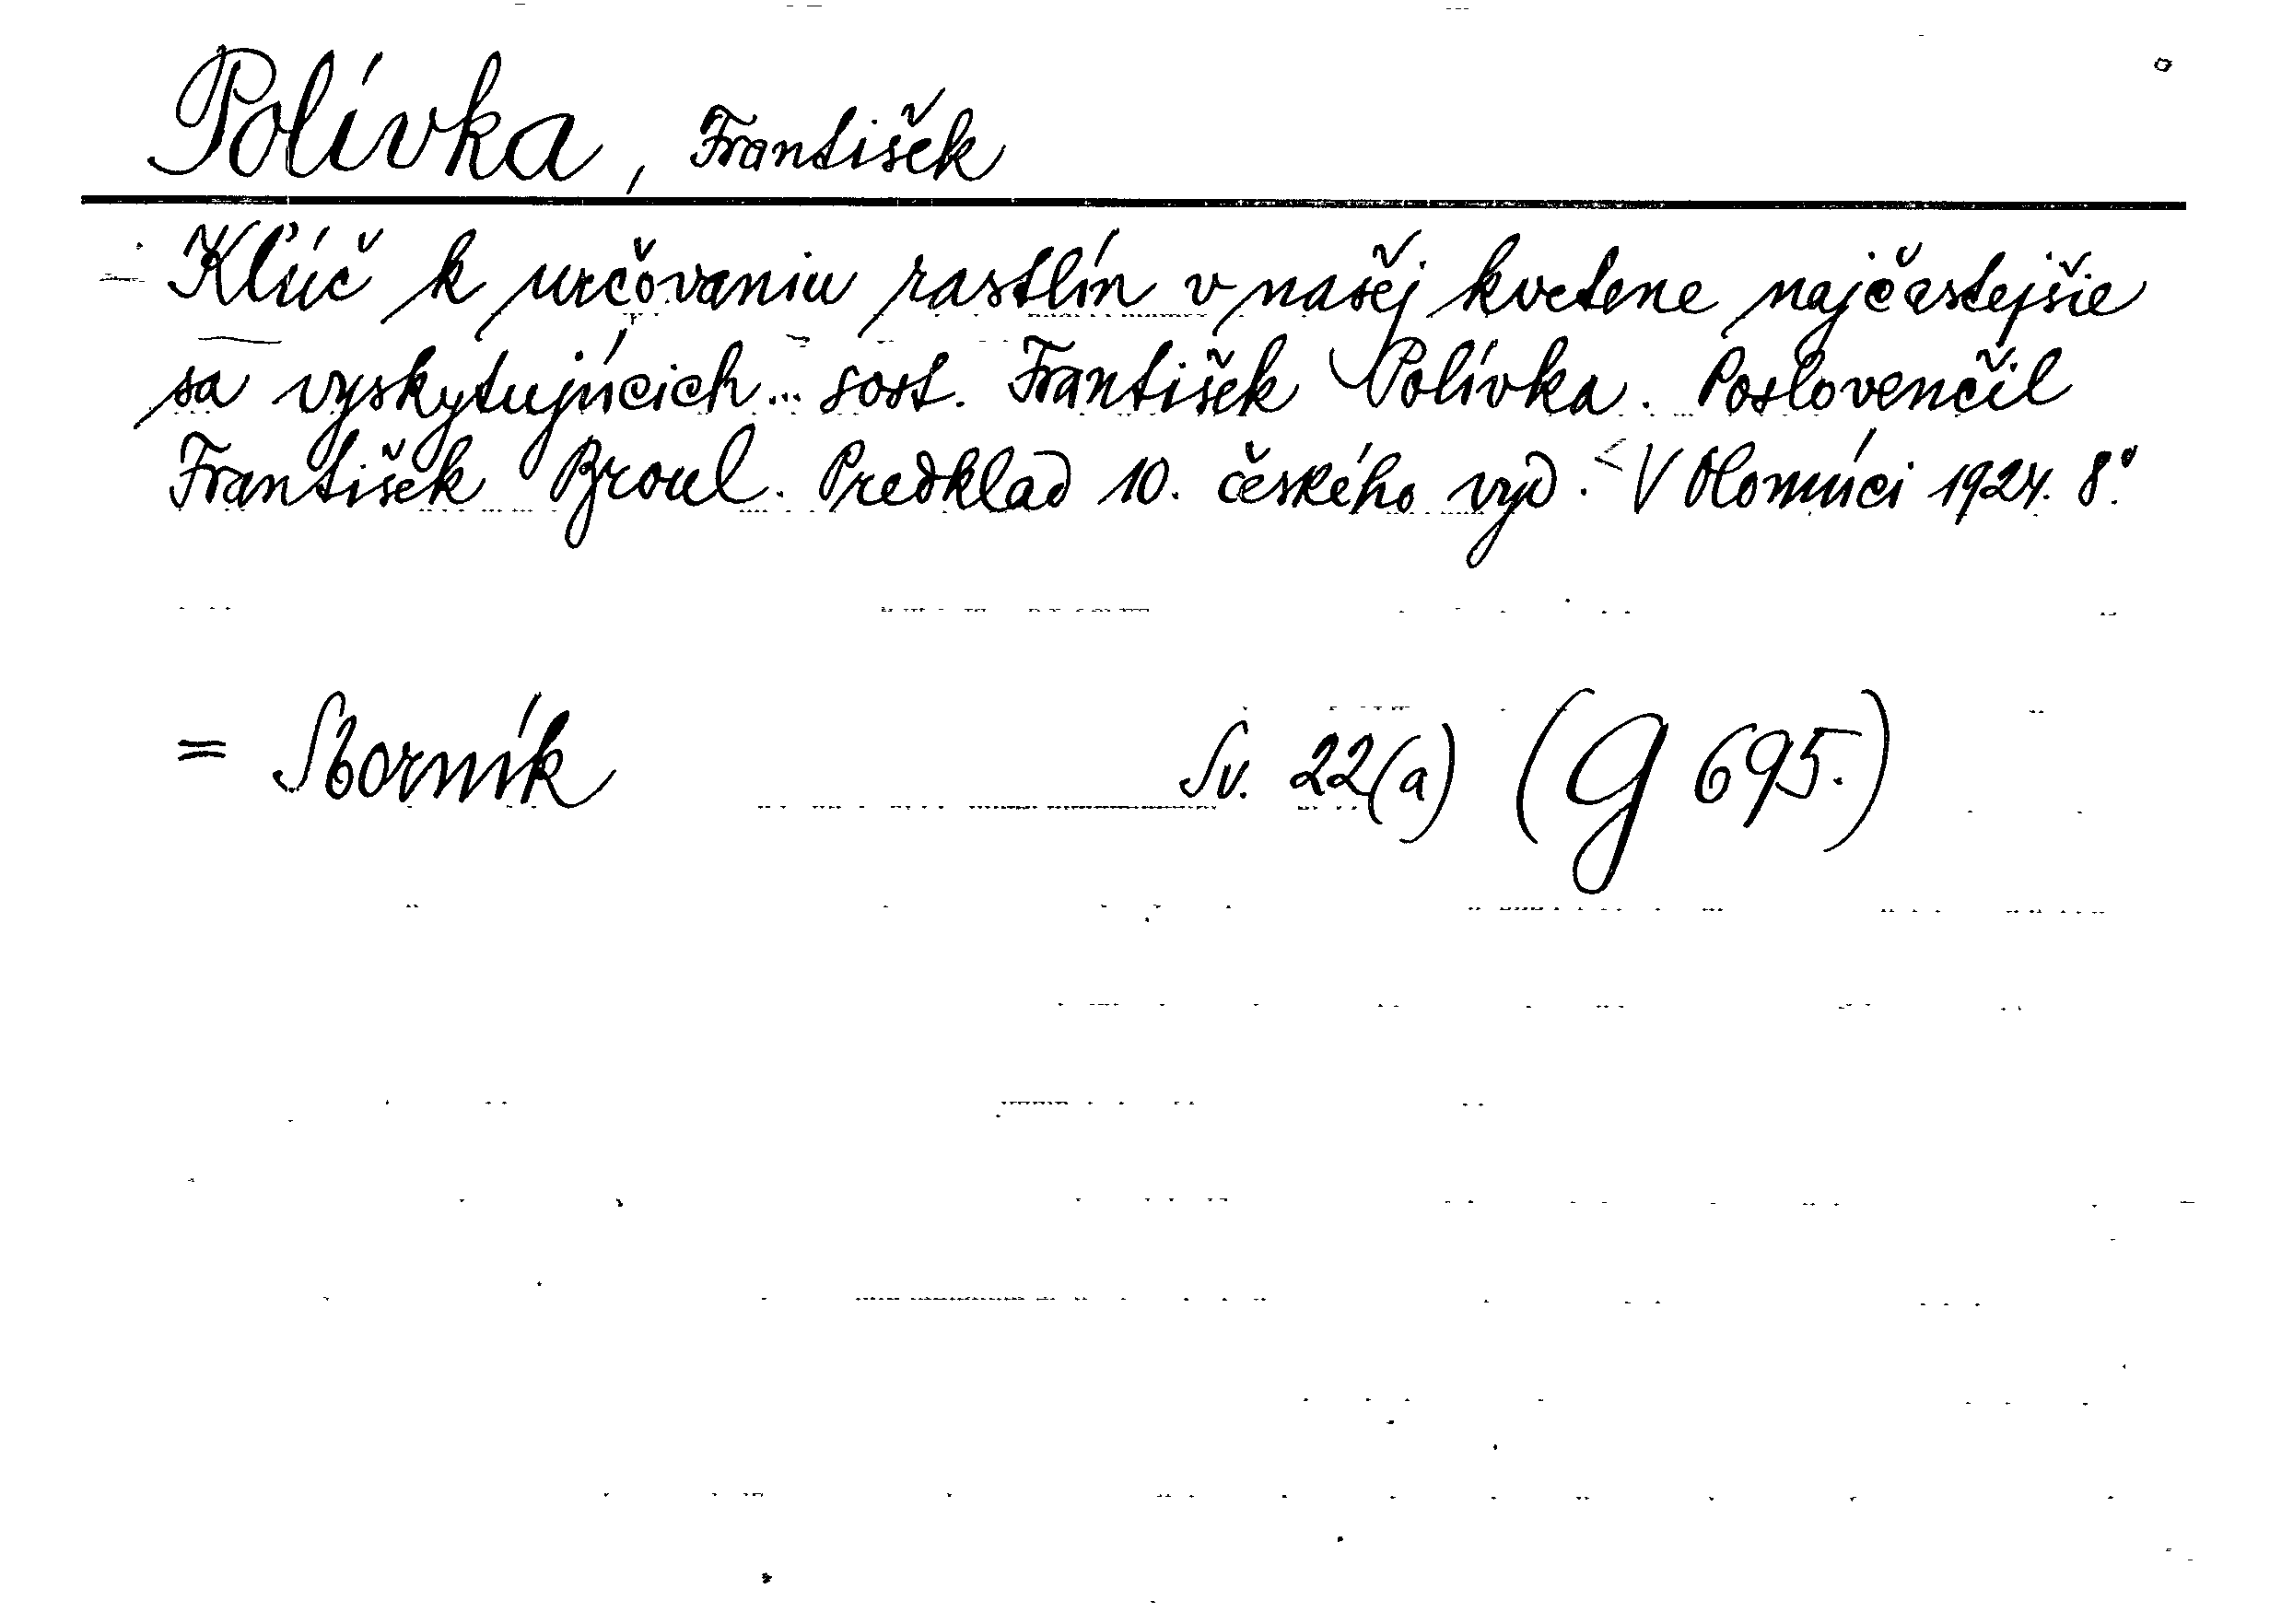 Polívka, František
Kľúč k určovaniu rastlín v našej kvetene najčastejšie
sa vyskytujúcich... sost. František Polívka. Poslovenčil
František Broul. Predklad 10. českého vyd. V Olomúci 1924. 8°.
= Sborník Sv. 22(a) (G 695.)